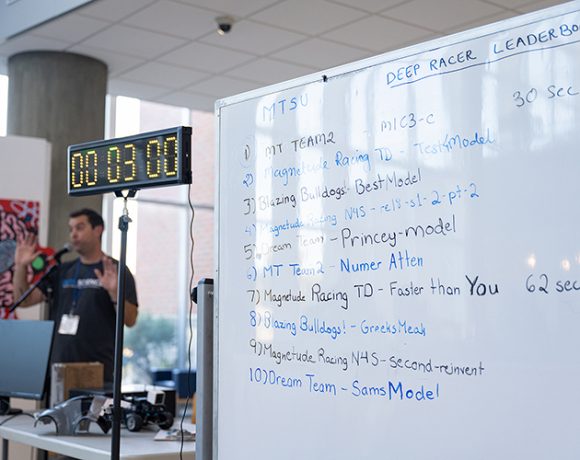 DEEP RACER LEADERBO
MTSU
1) MT TEAM2 - MIC3-C 30 sec
2) Magnetude Racing TD - Test4Model
3) Blazing Bulldogs! - BestModel
4) Magnetude Racing N4S - rel8-s1-2-pt-2
5) Dream Team - Princey-model
6) MT Team2 - Numer Atten
7) Magnetude Racing TD - Faster than You 62 sec
8) Blazing Bulldogs! - GreeksMeak
9) Magnetude Racing N4S - second-reinvent
10) Dream Team - SamsModel
00:03:00